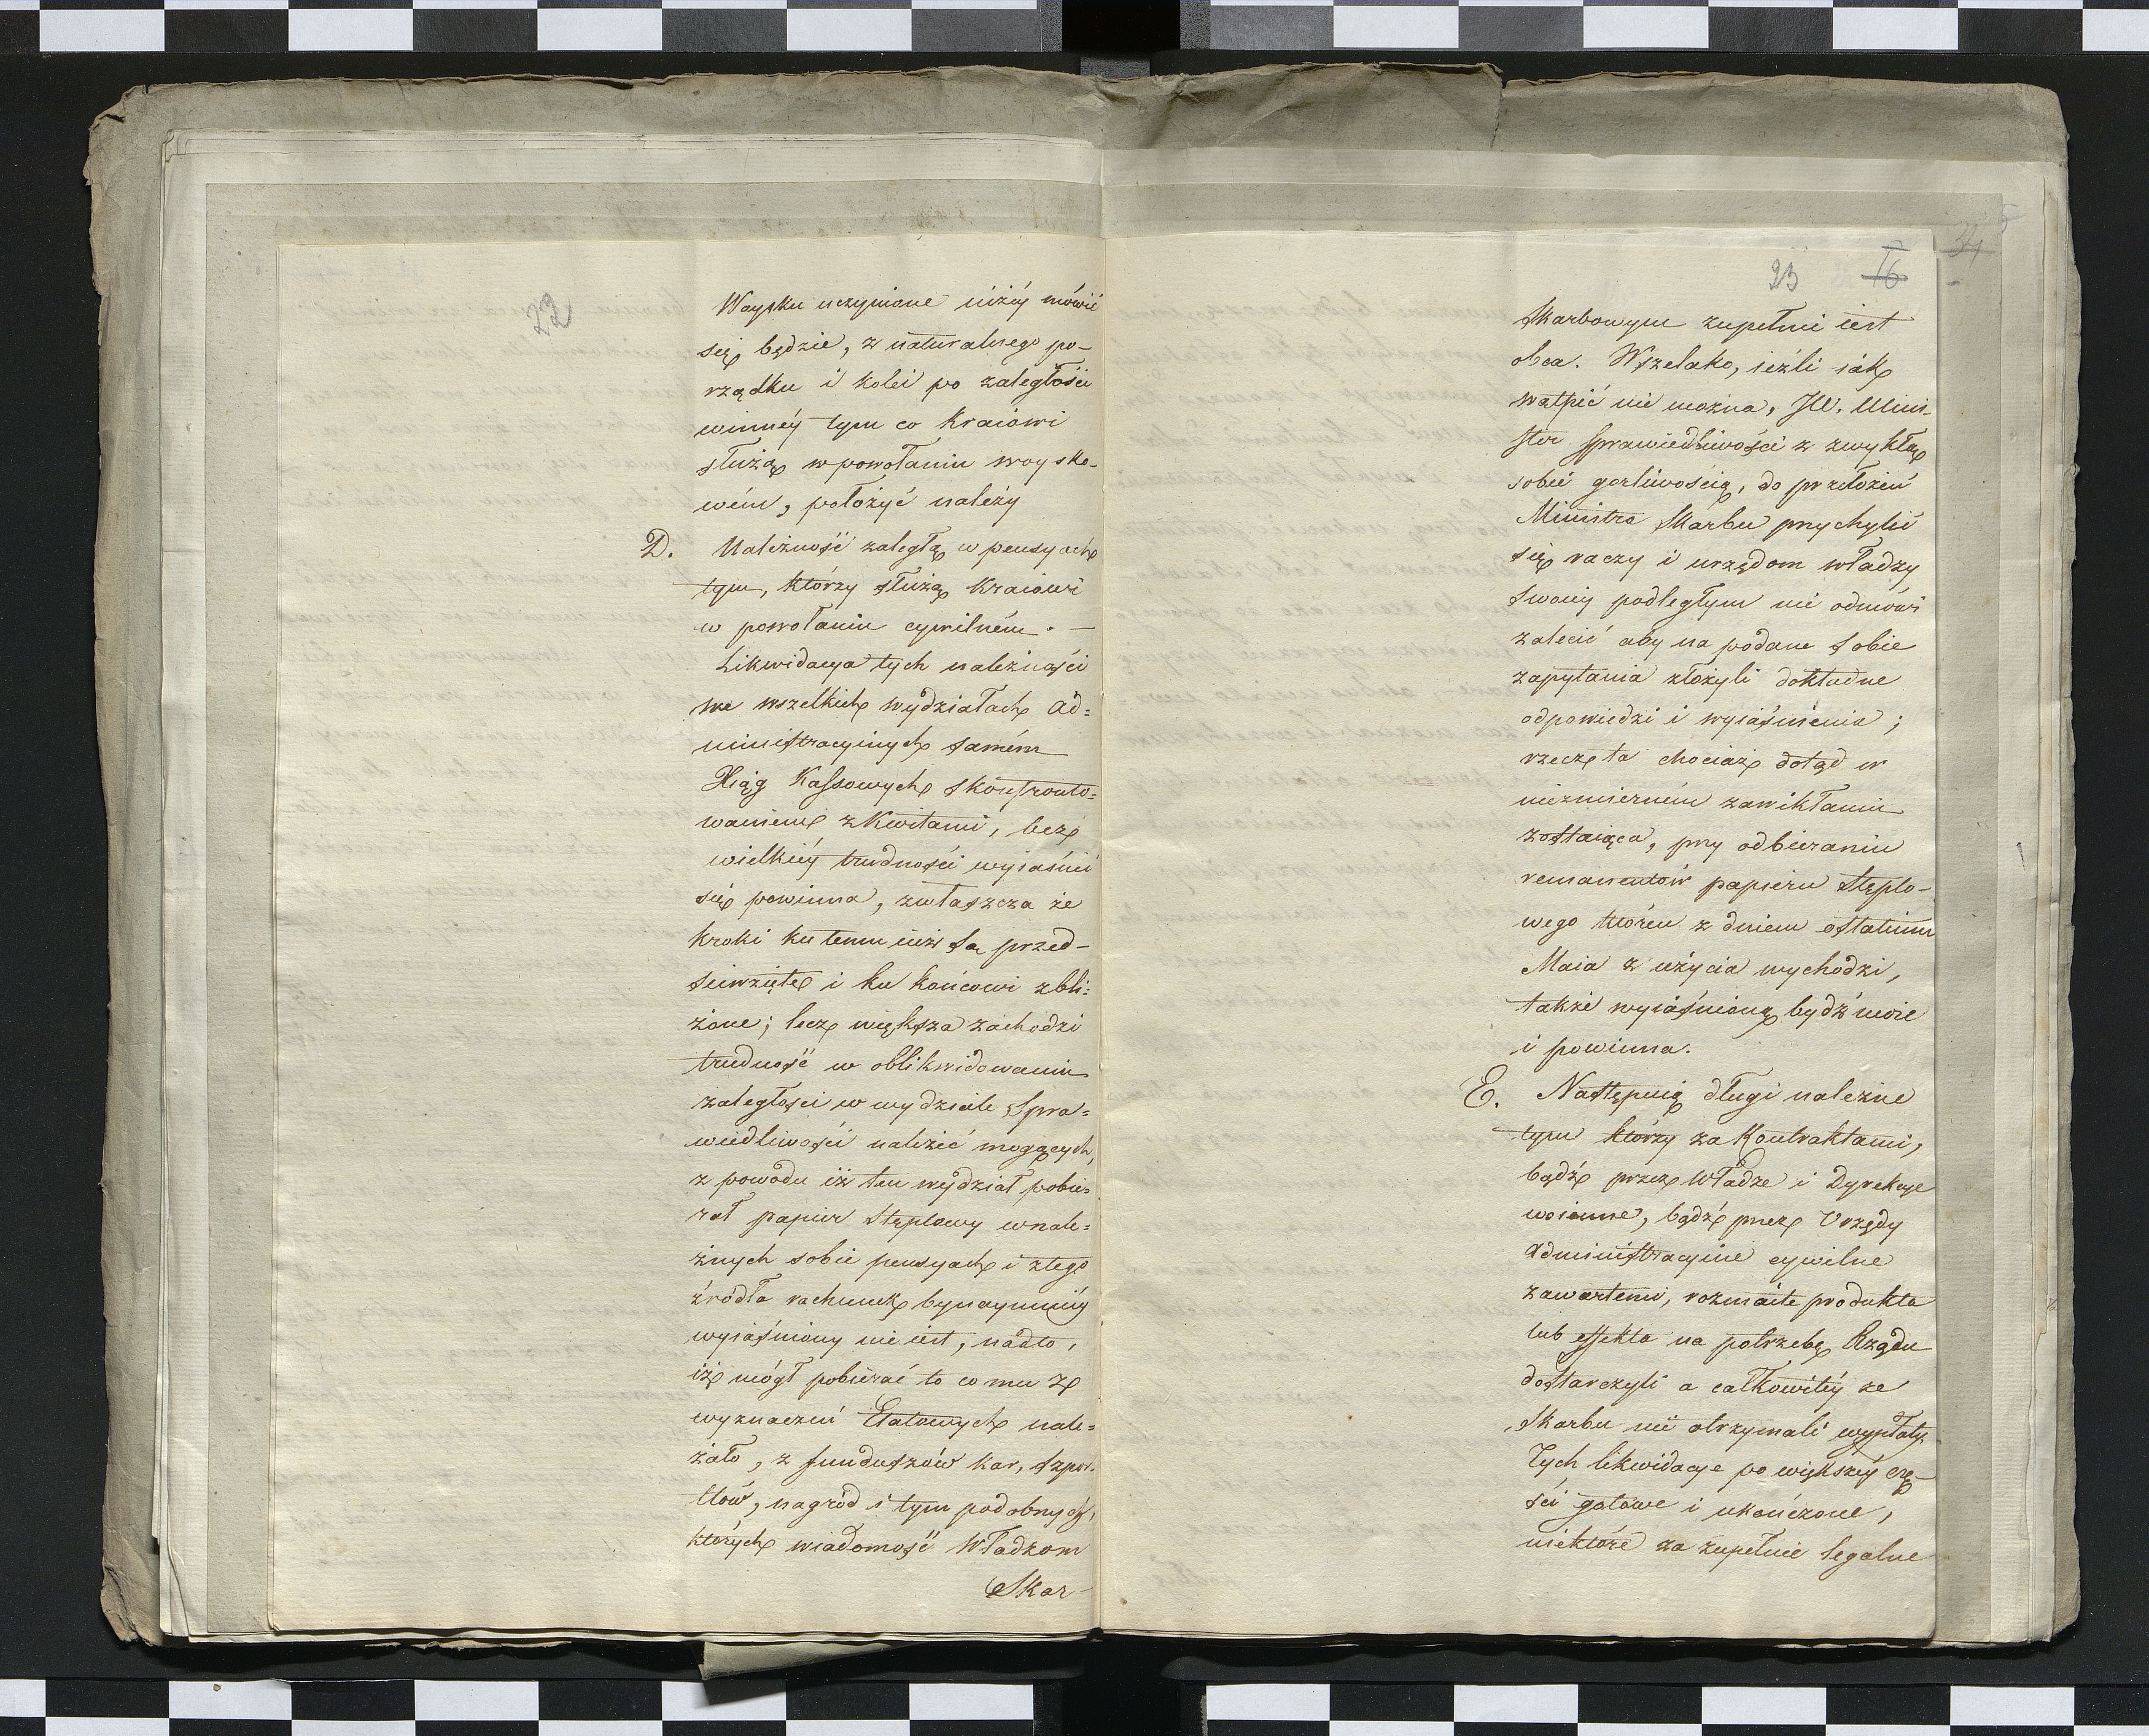 22
Woysku uczynione niżéy mówić
się będzie, z naturalnego po-
rządku i kolei po zaległości
winnéy tym co Kraiowi
służą w powołaniu woysko-
wém, położyć należy
D. Należność zaległą w pensyach
tym, którzy służą Kraiowi
w powołaniu cywilném. —
Likwidacya tych należności
we wszelkich wydziałach Ad=
ministracyinych samém
Xiąg Kassowych skonfronto=
waniem z Kwitami, bez
wielkiéy trudności wyiaśnić
się powinna, zwłaszcza że
kroki ku temu iuż są przed-
siewzięte i ku końcowi zbli=
żone; lecz większa zachodzi
trudność w oblikwidowaniu
zaległości w wydziale Spra=
wiedliwości należić mogących,
z powodu iż ten wydział pobie=
rał papier Stęplowy w nale=
żnych sobie pensyach i z tego
źródła rachunek bynaymniéy
wyiaśniony nie iest, nadto,
iż mógł pobierać to co mu z
wyznaczeń Etatowych nale=
żało, z funduszów kar, szpor-
tlów, nagród i tym podobnych,
których wiadomość Władzom
Skar-
23 16
34
Skarbowym zupełnie iest
obca. Wszelako, ieźli iak
wątpić nie można, JW. Mini-
ster Sprawiedliwości z zwykłą
sobie gorliwością, do przełożeń
Ministra Skarbu przychylić
się raczy i urzędom władzy
swoiéy podległym nie odmówi
zalecić aby na podane sobie
zapytania złożyli dokładne
odpowiedzi i wyiaśnienia;
rzecz ta chociaż dotąd w
niezmierném zawikłaniu
zostaiąca, przy odbieraniu
remanentów papieru Stęplo-
wego którén z dniem ostatnim
Maia z użycia wychodzi,
także wyiaśnioną bydź może
i powinna.
E. Następuią długi należne
tym którzy za Kontraktami,
bądź przez Władze i Dyrekcye
woienne, bądź przez Urzędy
Administracyine cywilne
zawartemi, rozmaite produkta
lub effekta na potrzebę Rządu
dostarczyli a całkowitéy ze
Skarbu nie otrzymali wypłaty.
Tych likwidacye po większéy czę-
ści gotowe i ukończone,
niektóre za zupełnie legalne